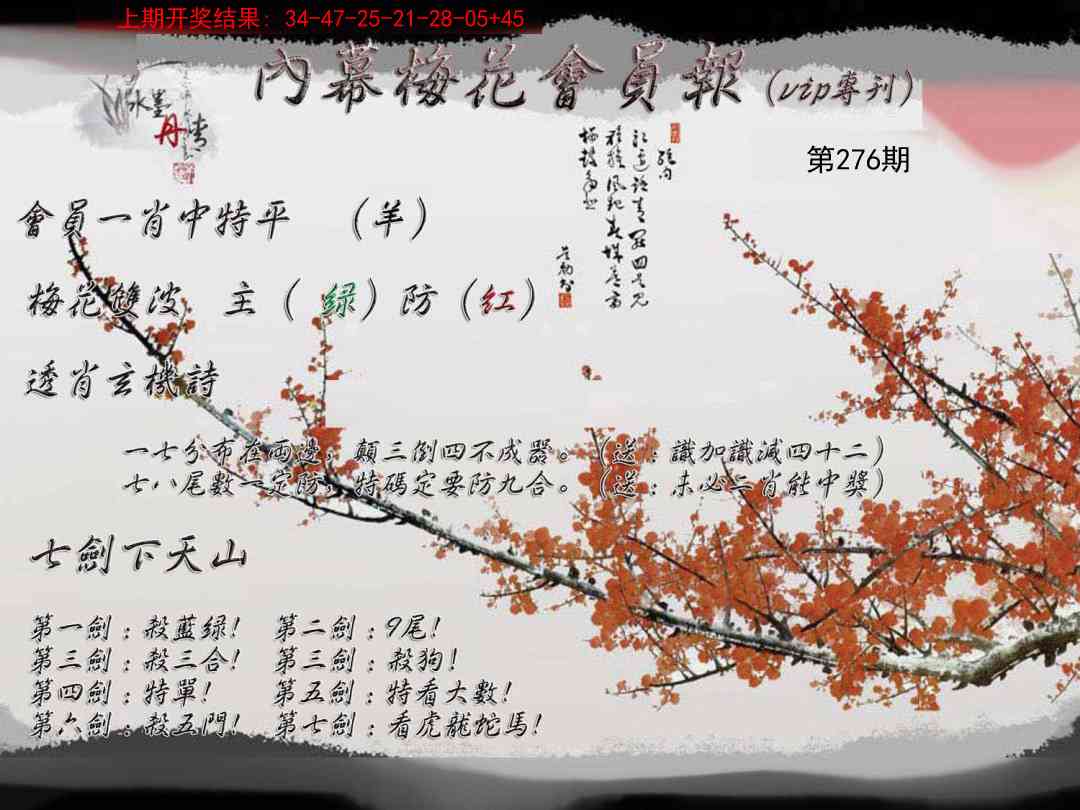 上期开奖结果: 34-47-25-21-28-05+45
內幕梅花會員報(vip專刊)
水墨
丹青
第276期
會員一肖中特平 (羊)
梅花雙波 主(绿)防(红)
透肖玄機詩
一七分布在両邊,顛三倒四不成器。(送:識加識減四十二)
七八尾數一定防,特碼定要防九合。(送:未必二肖能中獎)
七劍下天山
第一劍:殺藍绿! 第二劍:9尾!
第三劍:殺三合! 第三劍:殺狗!
第四劍:特單! 第五劍:特看大數!
第六劍:殺五門! 第七劍:看虎龍蛇馬!